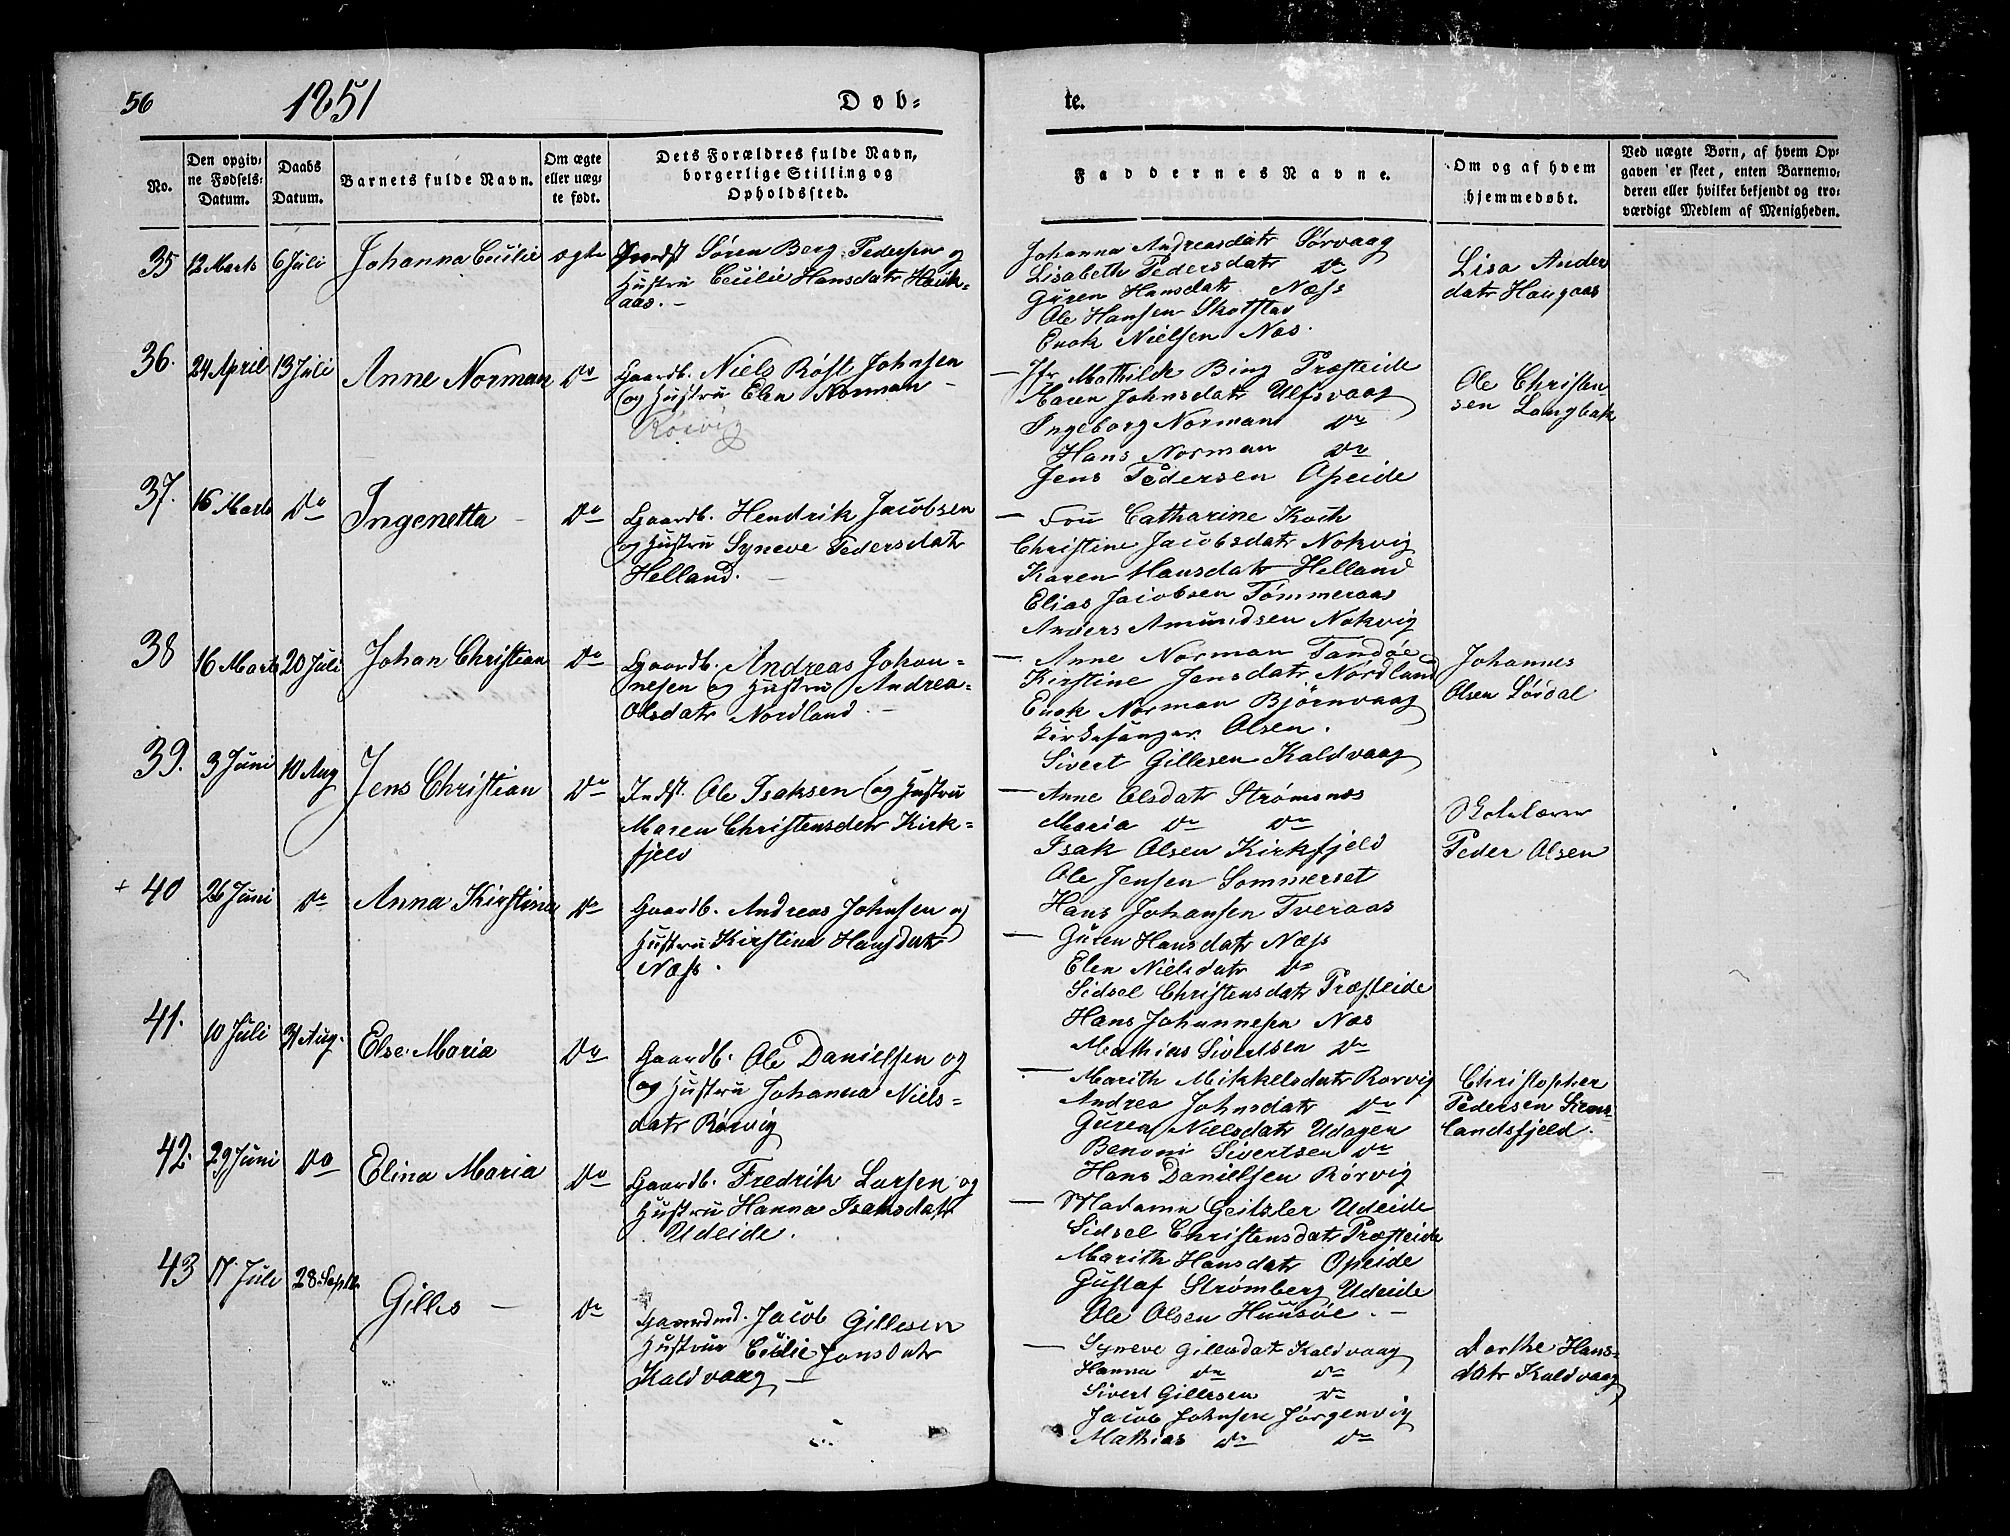 56
1851
Døb=
te.
No.
Den opgiv=
ne Fødsels=
Datum.
Daabs
Datum.
Barnets fulde Navn.
Om ægte
eller uæg=
te født.
Dets Forældres fulde Navn,
borgerlige Stilling og
Opholdssted.
Faddernes Navne.
Om og af hvem
hjemmedøbt.
Ved uægte Børn, af hvem Op=
gaven er skeet, enten Barnemo=
deren eller hvilket bekjendt og tro=
værdigt Medlem af Menigheden.
35
12 Marts
6 Juli
Johanna Cecilie
ægte
Indst Søren Berg Pedersen og
Hustru Cecilie Hansdatr Hauk=
aas. —
Johanna Andreasdatr Sørvaag
Lisabeth Pedersdatr Do
Guren Hansdatr Næss
Ole Hansen Skotstav
Enok Nielsen Næs.
Lisa Ander
datr Haugaas
36.
24 April
13 Juli
Anne Norman
Do
Gaardb. Niels Røst Johnsen
og Hustru Elen Norman —
Rørvig
— Jfr Mathilde Bing Præsteide
Maren Johnsdatr Ulfsvaag
Ingeborg Norman Do
Hans Norman Do
Jens Pedersen Opeide
Ole Christen
sen Langbak
37.
16 Marts
Do
Ingenetta —
Do
Gaardb. Hendrik Jacobsen
og Hustru Syneve Pedersdatr
Helland. —
— Fru Catharine Koch
Christine Jacobsdatr Nokvig
Karen Hansdatr Helland
Elias Jacobsen Tømmeraas
Anders Amundsen Nokvig
38
16 Marts
20 Juli
Johan Christian
Do
Gaardb. Andreas Johan=
nesen og Hustru Andrea
Olsdatr Nordland. —
— Anne Norman Tandøe
Kirstine Jensdatr Nordland
Enok Norman Bjørnvaag
Kirkesanger Olsen.
Sivert Gillesen Kaldvaag
Johannes
Olsen Sørdal
39.
3 Juni
10 Aug
Jens Christian
Do
Indst. Ole Isaksen og Hustru
Maren Christensdatr Kirk=
fjeld
— Anne Olsdatr Strømsnæs
Maria Do Do
Isak Olsen Kirkfjeld
Ole Jensen Sommerset
Hans Johansen Tveraas
Skolelærer
Peder Olsen
+ 40
26 Juni
Do
Anna Kirstina
Do
Gaardb. Andreas Johnsen og
Hustru Kirstina Hansdatr
Næss.
— Guren Hansdatr Næss
Elen Nielsdatr Do
Sidsel Christensdatr Præsteide
Hans Johannesen Næs
Mathias Sivertsen Do
41.
10 Juli
31 Aug.
Else Maria
Do
Gaardb. Ole Danielsen og
og Hustru Johanna Niels=
datr Rørvig
— Marith Mikkelsdatr Rørvig
Andrea Johnsdatr Do
Guren Nielsdatr Udagen
Benoni Sivertsen Do
Hans Danielsen Rørvig
Christopher
Pedersen
landsfjeld.
42.
29 Juni
Do
Elina Maria
Do
Gaardb. Fredrik Larsen og
Hustru Hanna Isaksdatr
Udeide.
— Madame Geitzler Udeide
Sidsel Christensdatr Præsteide
Marith Hansdatr Opeide
Gustaf Strømberg Udeide
Ole Olsen Huusøe. —
43
17 Juli
28 Septb
Gilles —
Do
Gaardmd. Jacob Gillesen
Hustrue Cecilie Jonsdatr
Kaldvaag —
— Syneve Gillesdatr Kaldvaag
Hanna Do Do
Sivert Gillesen Do
Jacob Johnsen Jørgenvig
Mathias Do Do
Dorthe Hans=
datr Kaldvaag